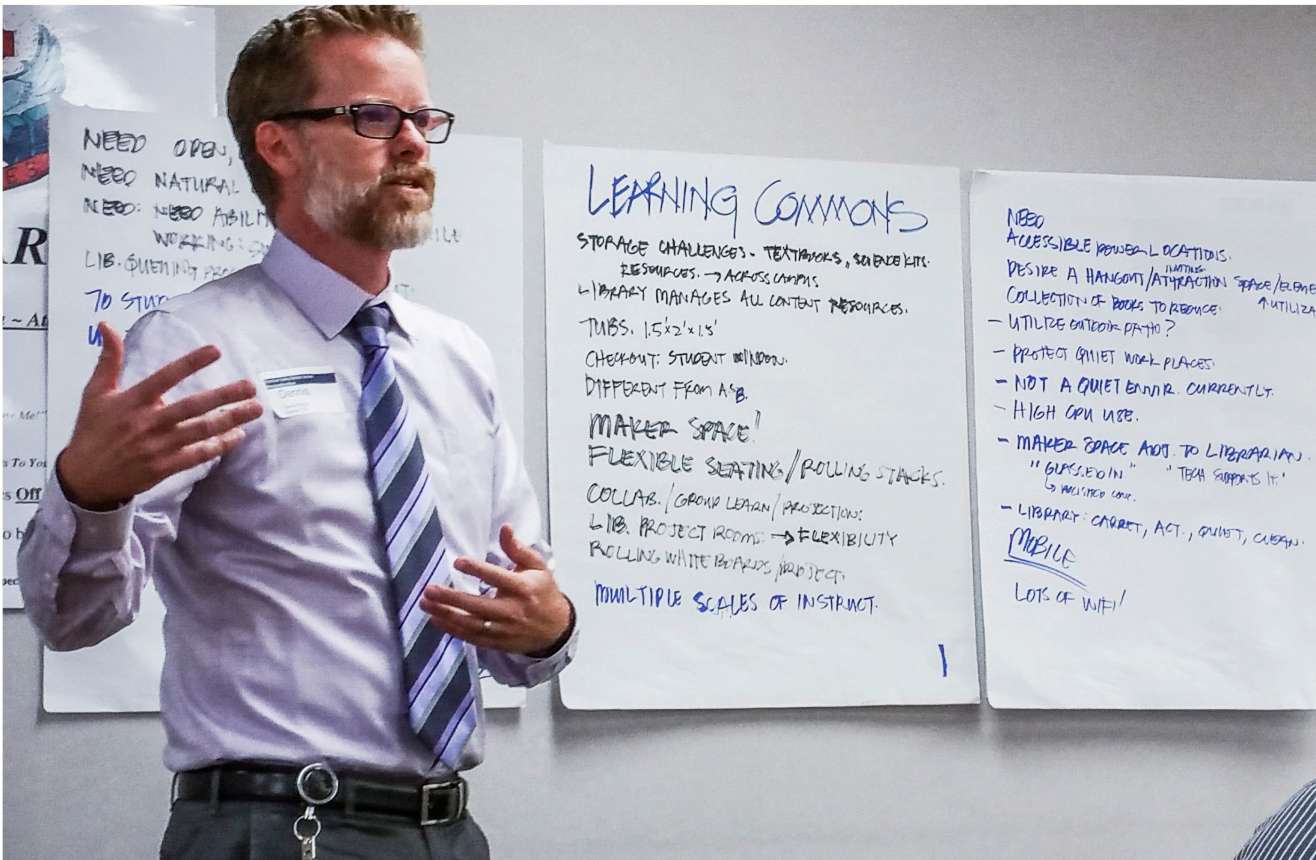 R
~ At
Me!"
s To You
s Off
NEED OPEN,
NEED NATURAL
NEED: NEED ABILI
WORKING:
LIB.
70 STU
Dennis
LEARNING COMMONS
STORAGE CHALLENGES - TEXTBOOKS, SCIENCE KITS.
RESOURCES. → ACROSS CAMPUS
LIBRARY MANAGES ALL CONTENT RESOURCES.
TUBS. 1.5'x2'x1.5'
CHECKOUT: STUDENT WINDOW.
DIFFERENT FROM ASB.
MAKER SPACE!
FLEXIBLE SEATING/ROLLING STACKS.
COLLAB./GROUP LEARN/PROJECTION:
LIB. PROJECT ROOMS. → FLEXIBILITY
ROLLING WHITE BOARDS/PROJECT.
MULTIPLE SCALES OF INSTRUCT.
1
NEED
ACCESSIBLE POWER LOCATIONS.
INVITING
DESIRE A HANGOUT/ATTRACTION SPACE/ELEME
COLLECTION OF BOOKS TO REDUCE. ↑UTILIZA
- UTILIZE OUTDOOR PATIO?
- PROJECT QUIET WORK PLACES.
- NOT A QUIET ENVIR. CURRENTLY.
- HIGH CPU USE.
- MAKER SPACE ADJ. TO LIBRARIAN.
"GLASSED IN" "TECH SUPPORTS IT."
- LIBRARY: CARRET, ACT., QUIET, CLEAN.
MOBILE
LOTS OF WIFI!